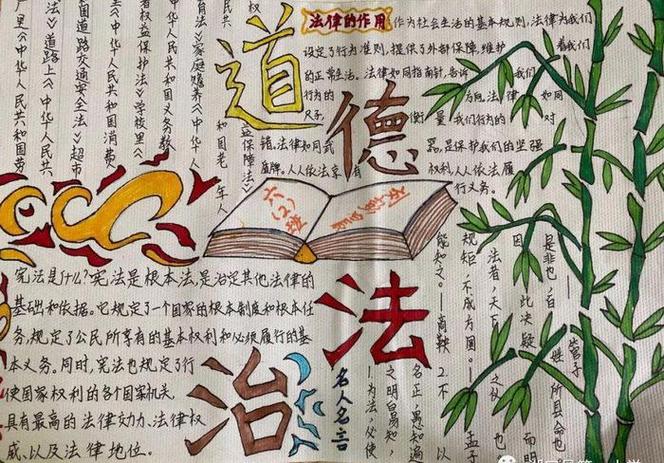 道德法治
法律的作用
作为社会生活的基本规则,法律为我们
设定了行为准则,提供了外部保障,维护
着我们
的正常生活。法律如同指南针,告诉
我们
行为的
方向,法律如同
尺子,
衡量我们行为的对
错。法律如同武
器,是保护我们的坚强
盾牌。人人依法享有
权利,人人依法履
行义务。
厂里《中华人民共和国劳
法》道路上《中华人民共
和国道路交通安全法》超市
《中华人民共和国消费
者权益保护法》学校里
《中华人民共和国义务教
育法》家庭赡养《中华人
民共和国老年人
权益保障法》
六(2)班
宪法是什么?宪法是根本法,是治定其他法律的
基础和依据。它规定了一个国家的根本制度和根本任
务,规定了公民所享有的基本权利和必须履行的基
本义务。同时,宪法也规定了行
使国家权利的各个国家机关,
具有最高的法律效力、法律权
威、以及法律地位。
名人名言
1.为法,必使
之明白易知,
名正,愚知遍
能知之。——商鞅
2.不以
规矩,不成方圆。——孟子
法者,天下之仪也
所以决疑而明
是非也,百姓所县命也
——管子